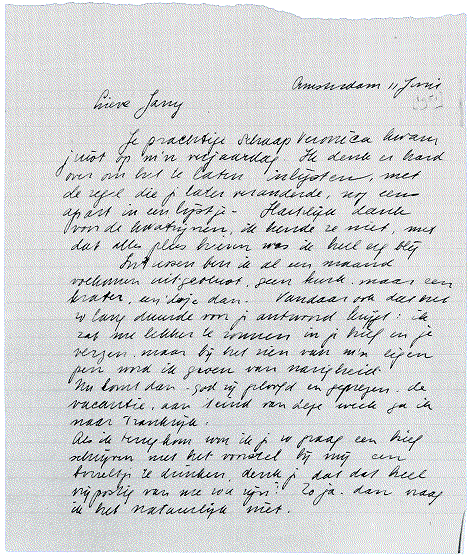 Amsterdam 11 Juni
Lieve Jany
Je prachtige schaap Veronica kwam
juist op m'n verjaardag. Ik denk er hard
over om het te laten inlijsten, met
de regel die je later veranderde, nog eens
apart in een lijstje. Hartelijk dank
voor de kwatrijnen, ik kende ze niet, met
dat alles plus brieven was ik heel erg blij
ben ik al een maand
volkomen uitgeblust, geen kurk, maar een
krater, en loze dan. Vandaar ook dat het
zo lang duurde voor je antwoord krijgt: ik
zat me lekker te zonnen in je brief en je
verzen, maar bij het zien van m'n eigen
pen word ik groen van narigheid.
Nu komt dan, god zij geloofd en geprezen, de
vacantie, aan 't eind van deze week ga ik
naar Frankrijk.
Als ik terug kom wou ik je zo graag een brief
schrijven met het voorstel bij mij een
borreltje te drinken, denk je dat dat heel
vrijpostig van me zou zijn? Zo ja, dan vraag
ik het natuurlijk niet.